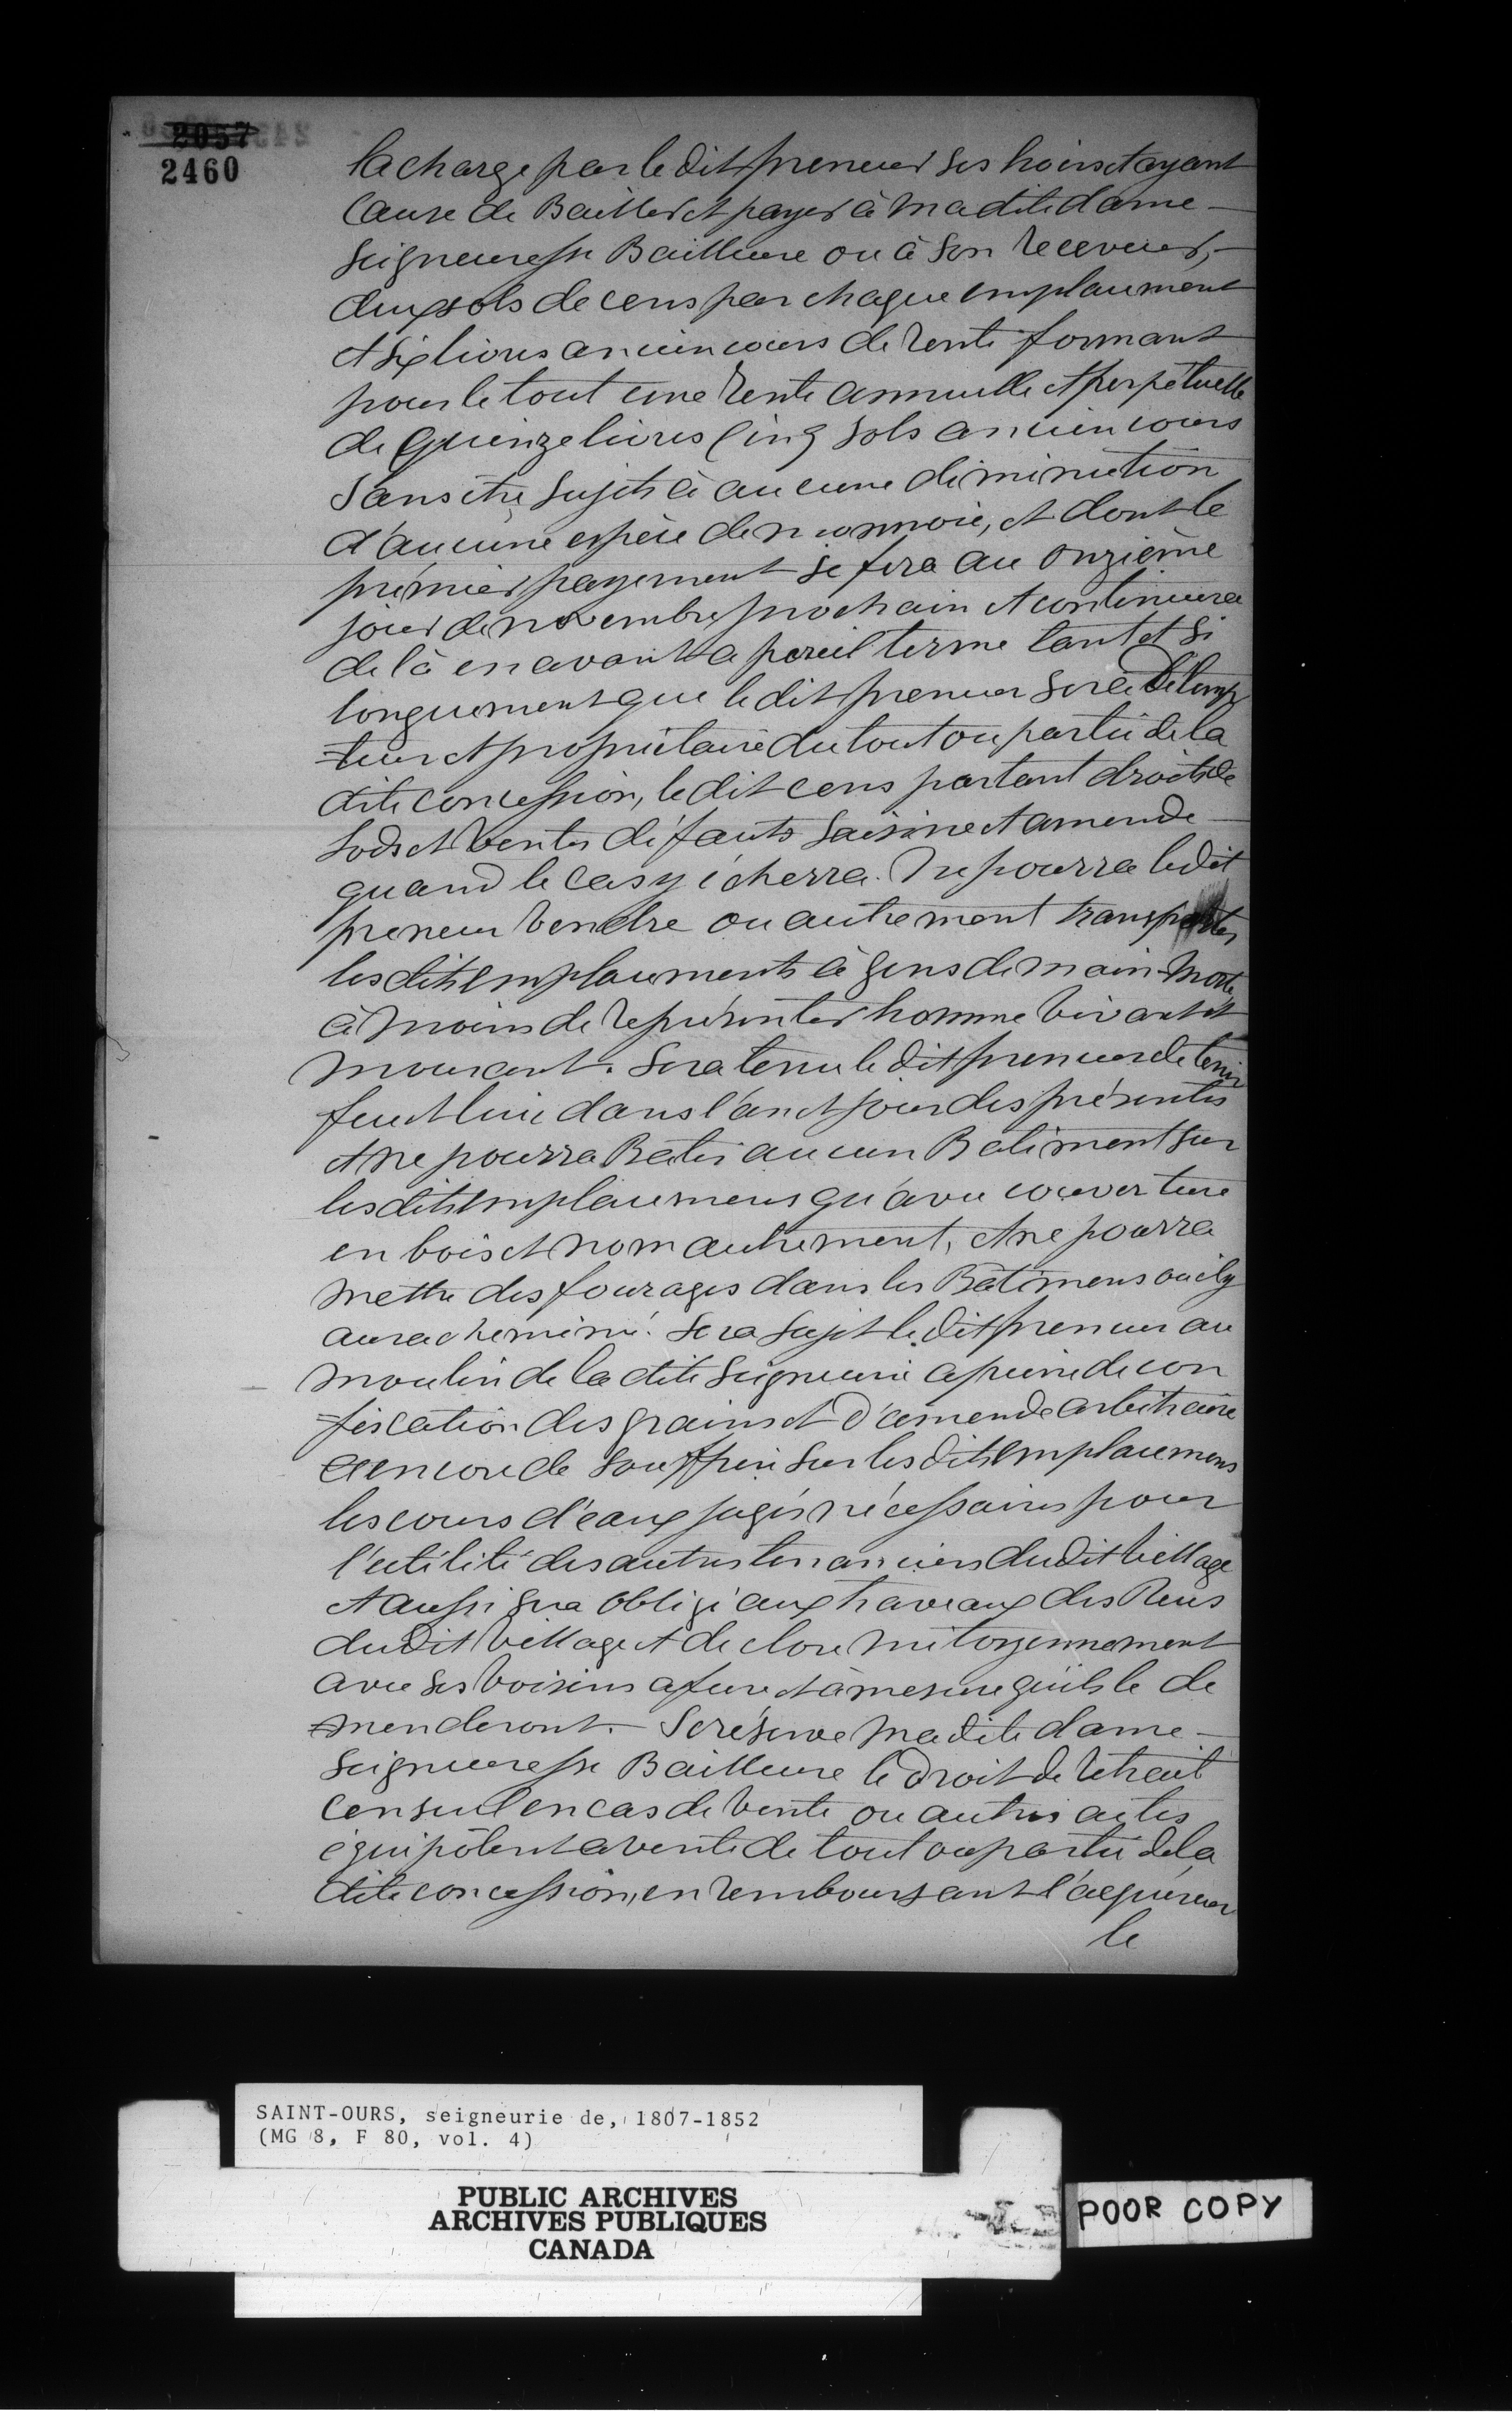 2057
2460
la charge par le dit preneur ses hoirs et ayant
Cause de Bailler et payer à Madite dame -
Seigneuresse Bailleure ou à Son receveur, -
deux sols de cens par chaque emplacement
et six livres ancien cours de rente formant
pour le tout une rente annuelle et perpétuelle
de Quinze livres Cinq Sols ancien cours
Sans être Sujets à aucune diminution
d'aucune espèce de monnoie, et dont le
prémier payement Se fera au onzième
jour de novembre prochain et continuera
de là en avant a pareil terme tant et Si
longuement que le dit preneur Sera Détemp
=teur et propriétaire du tout ou partie de la
dite concession, le dit cens portant droits de
Lods et Ventes défauts Saisine et amende -
quand le Cas y écherra. Ne pourra le dit
preneur Vendre ou autrement transporter
les dits Emplacements à gens de main-morte
à Moins de représenter homme Vivant et
Mourant. Sera tenu le dit preneur de tenir
feu et lieu dans l'an et jour des présentes
et ne pourra Batir aucun Batiment Sur
les dits Emplacemens qu'avec couverture
en bois et nom autrement, et ne pourra
Mettre des fourages dans les Bâtimens ou il y
aura cheminé. Sera Sujet le dit preneur au
Moulin de la dite Seigneurie a peine de con
=fiscation des grains et D'amende arbitraire
et encore de Souffrir Sur les dits Emplacemens
les cours d'eaux jugés nécessaires pour
l'utilité des autres tenanciers du Dit Village
et aussi Sera Obligé aux travaux des Rues
du Dit Village et de clore mitoyennement
avec Ses Voisins a fure et à mesure qu'ils le de
=menderont. - Se réserve Madite dame -
Seigneuresse Bailleure le Droit de Retrait
Censuel en cas de Vente ou autres actes
équipôlent a vente de tout ou partie de la
dite concession, en remboursant l'acquereur
le
SAINT-OURS, seigneurie de, 1807-1852
(MG 8, F 80, vol. 4)
PUBLIC ARCHIVES
ARCHIVES PUBLIQUES
CANADA
POOR COPY